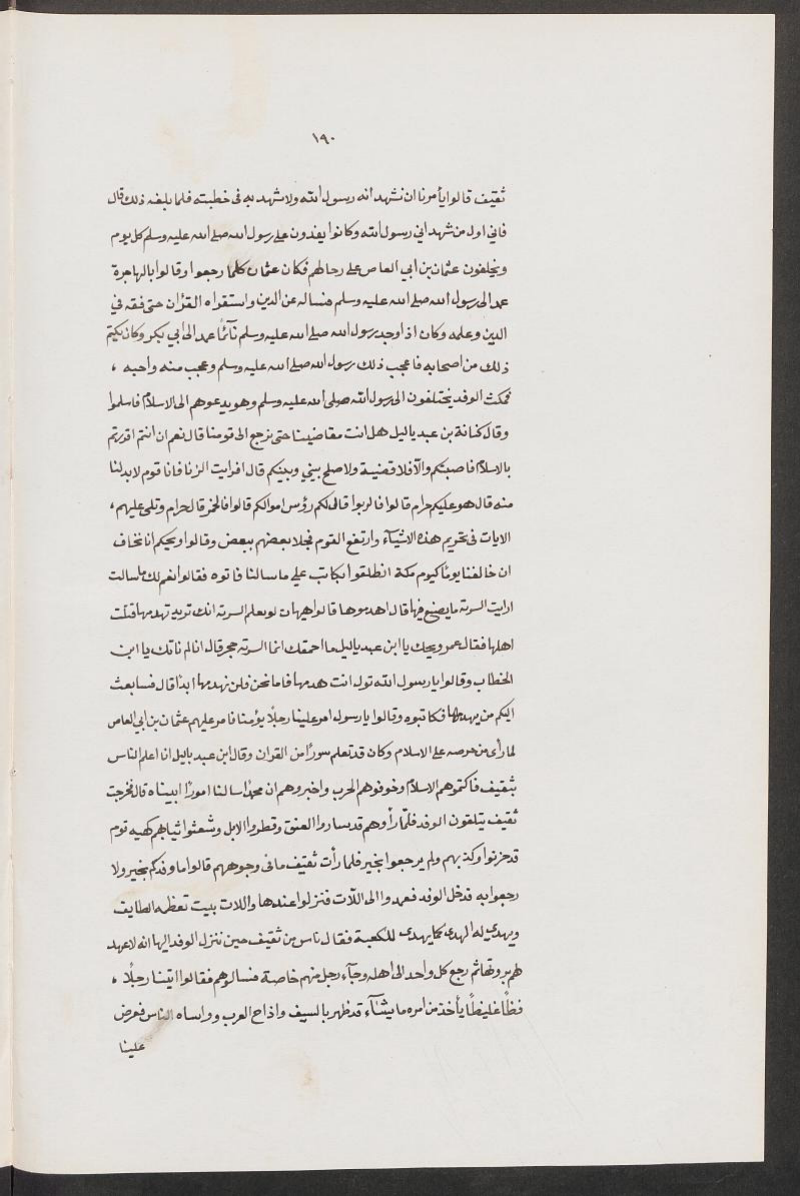 ١٩٠
ثقيف قالوا يأمرنا ان نشهد انه رسول الله ولا شهد به فى خطبته فلما بلغه ذلك قال
فاني اول من شهد اني رسول الله وكانوا يغدون على رسول الله صلى الله عليه وسلم كل يوم
ويخلفون عثمان بن ابي العاص على رحالهم فكان عثمان كلما رجعوا وقالوا بالهاجرة
عمد الى رسول الله صلى الله عليه وسلم فساله عن الدين واستقراه القرٰان حتى فقه في
الدين وعلمه وكان اذا وجد رسول الله صلى الله عليه وسلم نآئمًا عمد الى ابي بكر وكان يكتم
ذلك من اصحابه فاعجب ذلك رسول الله صلى الله عليه وسلم وعجب منه واحبه ،
فمكث الوفد يختلفون الى رسول الله صلى الله عليه وسلم وهو يدعوهم الى الاسلام فاسلموا
وقال كنانة بن عبد ياليل هل انت مقاضينا حتى نرجع الى قومنا قال نعم ان انتم اقررتم
بالاسلام قاضيتكم والّا فلا قضية ولا صلح بيني وبينكم قال افرايت الزنا فانا قوم لا بد لنا
منه قال هو عليكم حرام قالوا فالربوا قال لكم رؤس اموالكم قالوا فالخمر قال حرام وتلى عليهم ،
الايات فى تحريم هذه الاشيآء وارتفع القوم فخلا بعضهم ببعض وقالوا ويحكم انا نخاف
ان خالفنا يومًا كيوم مكة انطلقوا نكاتب على ما سالنا فاتوه فقالوا نعم لك ما سالت
ارايت الربة ما يصنع فيها قال اهدموها قالوا هيهات لو تعلم الربة انك تريد تهدمها قتلت
اهلها فقال عمر ويحك يا ابن عبد ياليل ما احمقك انما الربة حجر قال انا لم ناتك يا ابن
الخطاب وقالوا يا رسول الله تول انت هدمها فاما نحن فلن نهدمها ابدًا قال فسابعث
اليكم من يهدمها فكاتبوه وقالوا يا رسول امر علينا رجلًا يؤمنا فامر عليهم عثمان بن ابي العاص
لما راى من حرصه على الاسلام وكان قد تعلم سورًا من القران وقال ابن عبد ياليل انا اعلم الناس
بثقيف فاكتموهم الاسلام وخوفوهم الحرب واخبروهم ان محمدًا سالنا امورًا ابيناه قال فخرجت
ثقيف يتلقون الوفد فلمّا رأوهم قد ساروا العنق وقطروا الابل وشعثوا ثيابهم كهيه قوم
قد حزنوا وكذبهم ولم يرجعوا بخير فلما رأت ثقيف ما فى وجوههم قالوا ما وفدكم بخير ولا
رجعوا به قد خل الوفد فعمدوا الى اللّات فنزلوا عندها واللات بيت تعظمه الطايف
ويهدي له الهدى كما يهدى للكعبة فقال ناس من ثقيف حين ننزل الوفد اليها انه لا عهد
لهم برويتها ثم رجع كل واحد الى اهله وجآء رجل منهم خاصة فسالوهم فقالوا اتينا رجلًا ،
فظًا غليظًا يأخذ من امره ما يشآء قد ظهر بالسيف واذاح العرب وواساه الناس فعرض
علينا